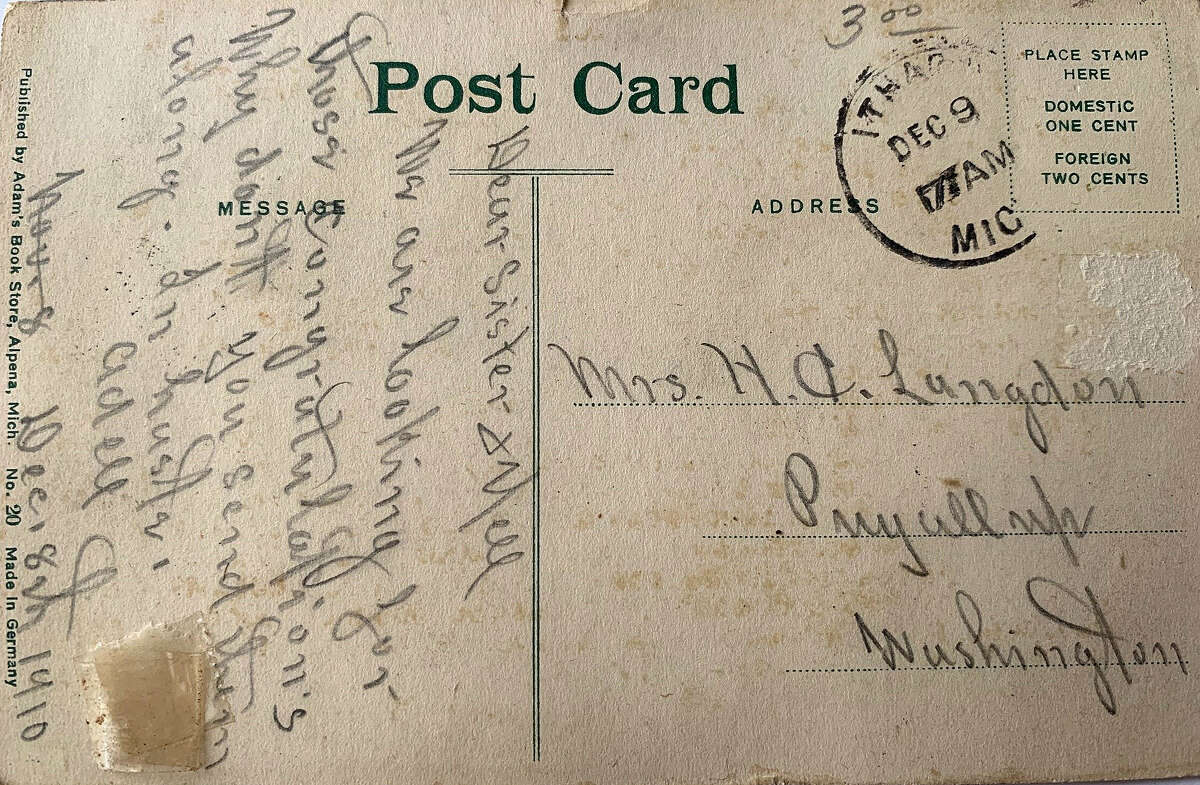 Post Card
3.00
PLACE STAMP
HERE
DOMESTIC
ONE CENT
FOREIGN
TWO CENTS
ITHACA
DEC 9
AM
MIC
MESSAGE
ADDRESS
Dear-Sister-
We are looking for
those Congratulation's
Why don't you send them
along. In
Adell
Dec, 8th 1910
Mrs. H. C. Langdon
Puyallup
Washington
Published by Adam's Book Store, Alpena, Mich. No. 20 Made in Germany